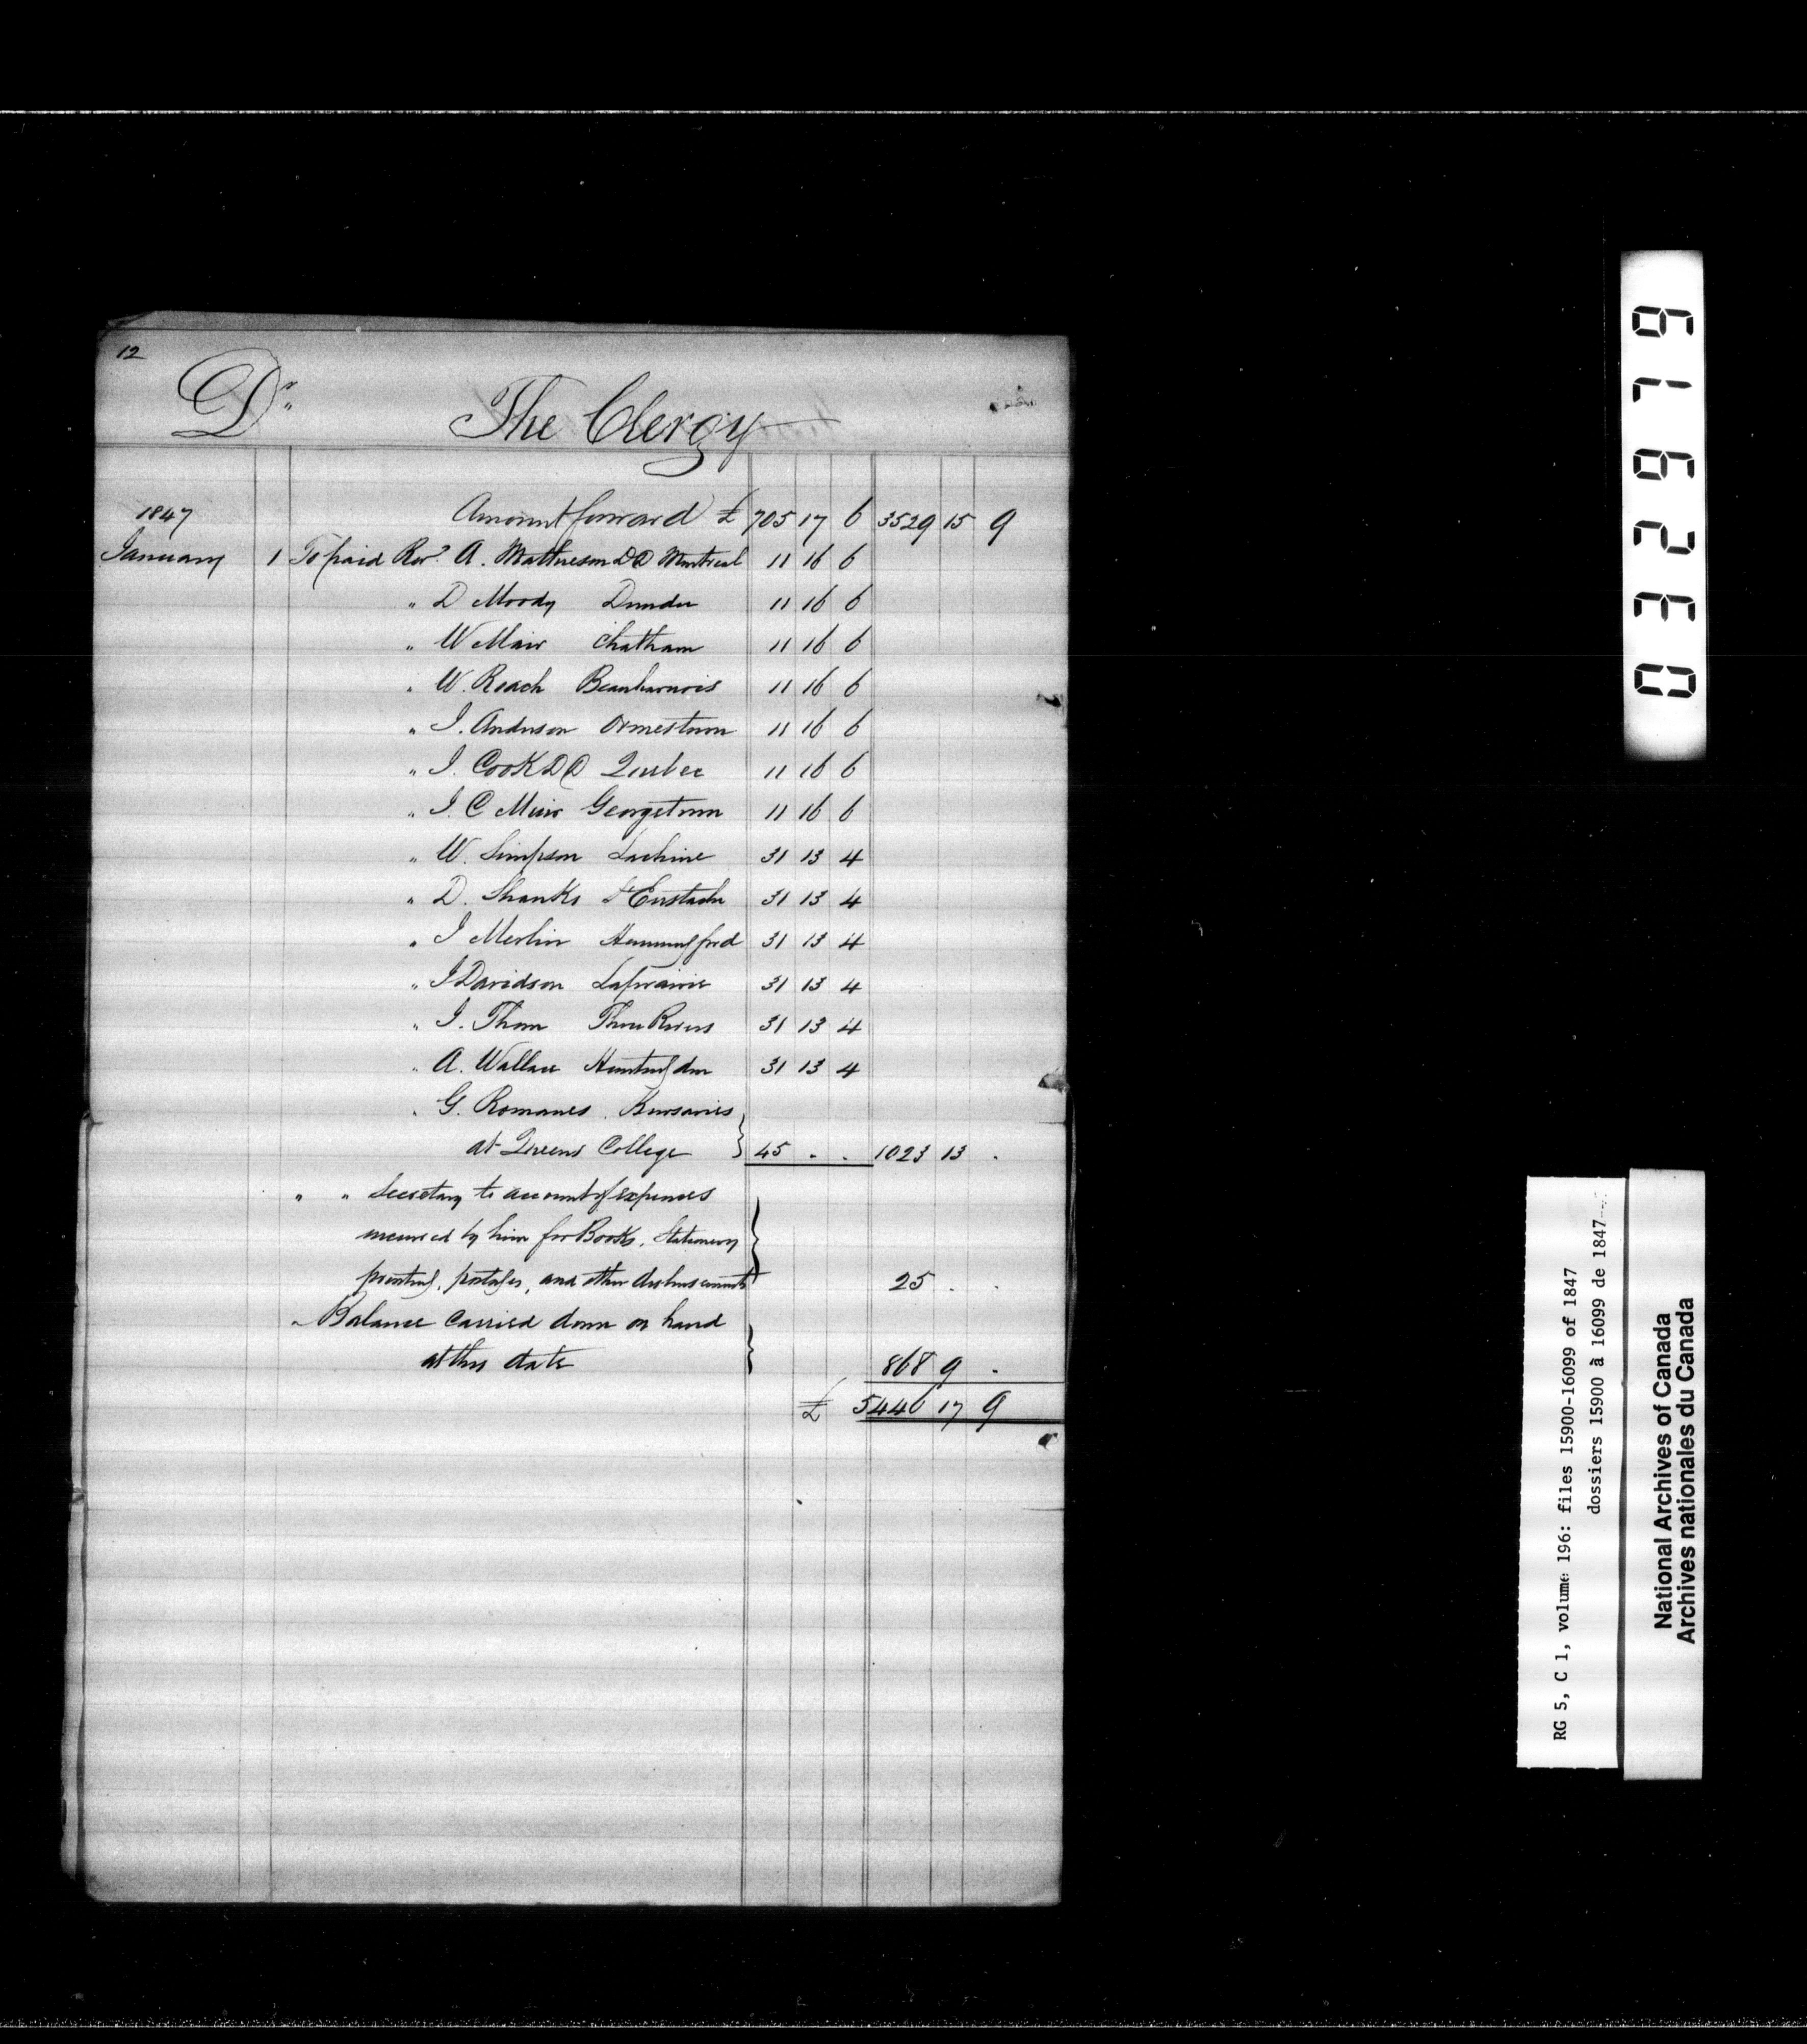 12
Dr. The Clergy
Amount forward £ 705 17 6 3529 15 9
1847
January 1 To paid Revd. A. Mathieson DD Montreal 11 16 6
" D Moody Dundee 11 16 6
" W Mair Chatham 11 16 6
" W. Roach Beauharnois 11 16 6
" J. Anderson Ormestown 11 16 6
" J. Cook DD Quebec 11 16 6
" J. C Muir Georgetown 11 16 6
" W. Simpson Lachine 31 13 4
" D. Shanks St Eustache 31 13 4
" J Merlin Hemmingford 31 13 4
" J Davidson Laprairie 31 13 4
" J. Thom Three Rivers 31 13 4
" A. Wallace Huntingdon 31 13 4
" G. Romanes. Bursaries
at Queens College } 45 . . 1023 13 .
" " Secretary to account of expenses
incurred by him for Books, Stationery
printing, postages, and other disbursements } 25 . .
" Balance carried down on hand
at this date } 868 9 .
£ 5446 17 9
032979
RG 5, C 1, volume 196: files 15900-16099 of 1847
dossiers 15900 à 16099 de 1847
National Archives of Canada
Archives nationales du Canada